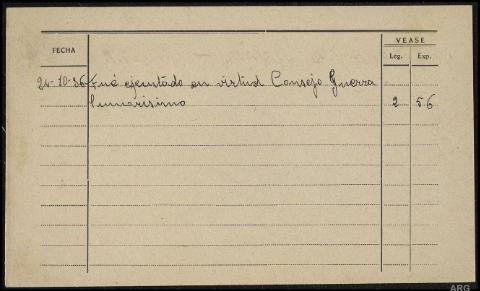 VEASE
FECHA
Leg. Exp.
24-10-36 Fué ejecutado en virtud Consejo Guerra
sumarisimo 2 56
ARG